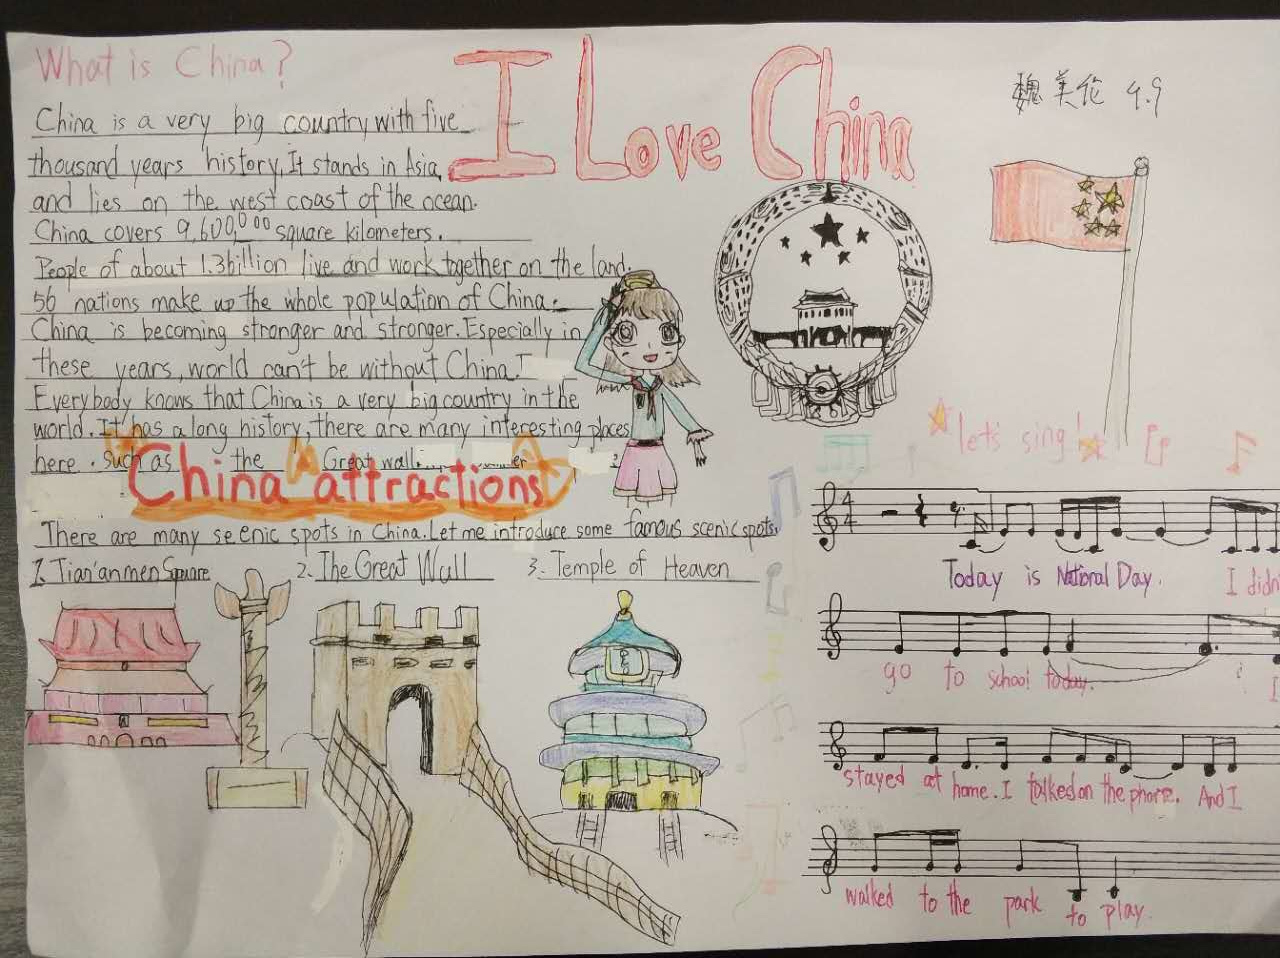 What is China?
I Love China
魏美伦 4.9
China is a very big country with five
thousand years history, It stands in Asia,
and lies on the west coast of the ocean.
China covers 9,600,000 square kilometers.
People of about 1.3billion live and work together on the land.
56 nations make up the whole population of China.
China is becoming stronger and stronger. Especially in
these years, world can't be without China.
Everybody knows that China is a very big country in the
world. It has a long history, there are many interesting places
here. such as the Great wall
China attractions
There are many seenic spots in China. Let me introduce some famous scenic spots.
1. Tian'anmen Square 2. The Great Wall 3. Temple of Heaven
let's sing!
4/4
Today is National Day. I didn
go to school today. I
stayed at home. I talked on the phone. And I
walked to the park to play.